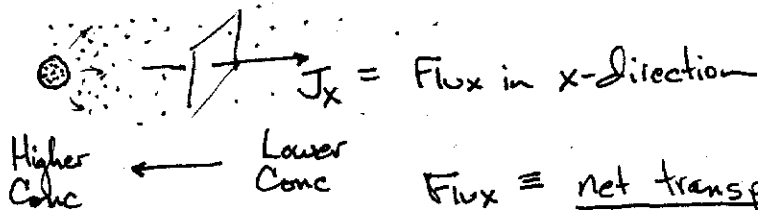 Jx = Flux in x-direction
Higher Conc ← Lower Conc
Flux ≡ net transp